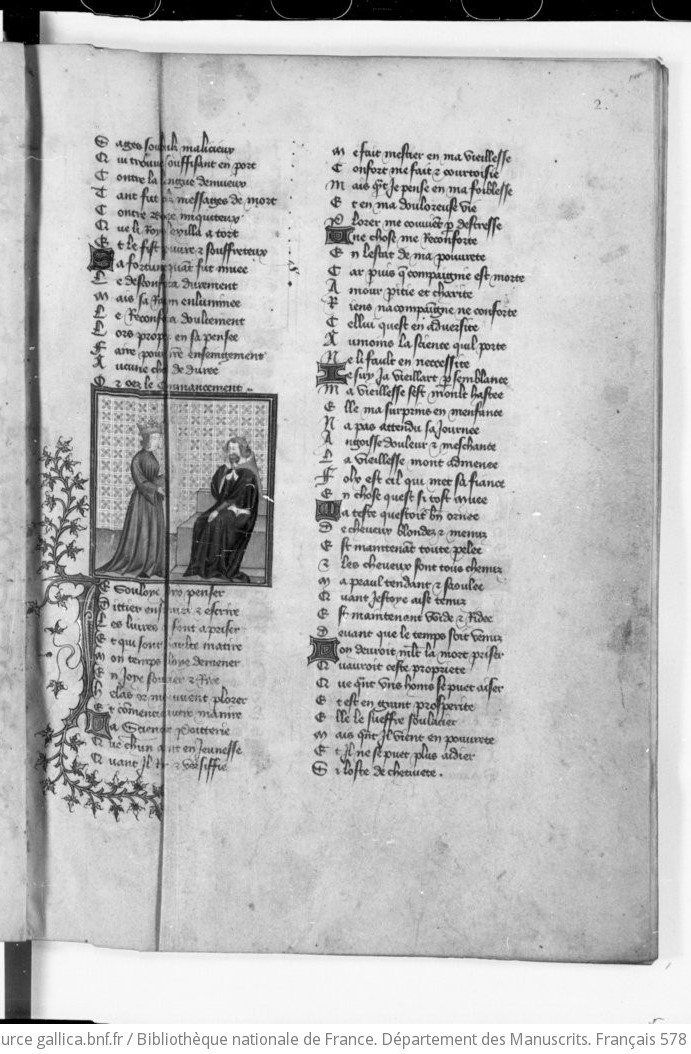 2.
Sages soubtilz malicieux
Qui trouve souffisant en port
Contre la langue
Tant fut messages de mort
Contre
Que li Roys exilla a tort
Et le fist povre z souffreteux
La fortune quant fut muee
Le desconforta durement
Mais sa Raison enluminee
Le Reconforta doulcement
Lors propo en sa pensee
Faire pour nre enseignement
Aucune chose de duree
Or oez le commancement
Je Souloye jadis penser
Dittier en z escrire
Les livres sont a priser
Et qui sont haulte matire
Mon temps demener
En joye soulacier z Rire
Helas or me convient plorer
Et commencier aultre maniere
La Science
Que chun aint en jeunesse
Quant Il Rit z versiffie
Me fait mestier en ma vieillesse
Confort me fait z courtoisie
Mais qnt Je pense en ma foiblesse
Et en ma douloureuse vie
Plorer me couvient p destresse
Une chose me Reconforte
En lestat de ma pouurete
Car puis q compaignie est morte
Amour pitie et charite
Riens nacompaigne ne conforte
Cellui quest en adversite
Aumoins la science quil porte
Ne li fault en neccessite
Je suy Ja vieillart p semblance
Ma vieillesse sest moult hastee
Elle ma surprins en menfance
Na pas attendu sa Journee
Angoisse douleur z meschance
La vieillesse mont admenee
Folx est cil qui met sa fiance
En chose quest si tost muee
Ma teste questoit bn ornee
De cheveux blondez z menuz
Est maintenant toute pelee
z les cheveux sont tous chenuz
Ma peaul tendant z saoulee
Quant Jestoye aise tenuz
Est maintenant vuide z Ridee
Devant que le temps soit venuz
Lon devroit mlt la mort priser
Qu auroit ceste propriete
Que qnt vns homs se puet aiser
Et est en grant prosperite
Elle le sueffre soulacier
Mais qnt Il vient en pouurete
Et Il ne se puet plus aidier
Si loste de chetivete.
urce gallica.bnf.fr / Bibliothèque nationale de France. Département des Manuscrits. Français 578